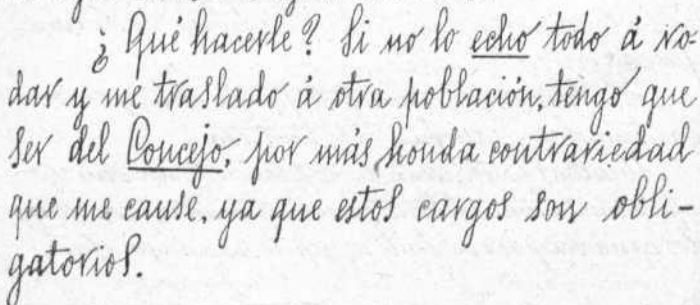 ¿Qué hacerle? Si no lo echo todo á ro-
dar y me traslado á otra población, tengo que
ser del Concejo, por más honda contrariedad
que me cause, ya que estos cargos son obli-
gatorios.